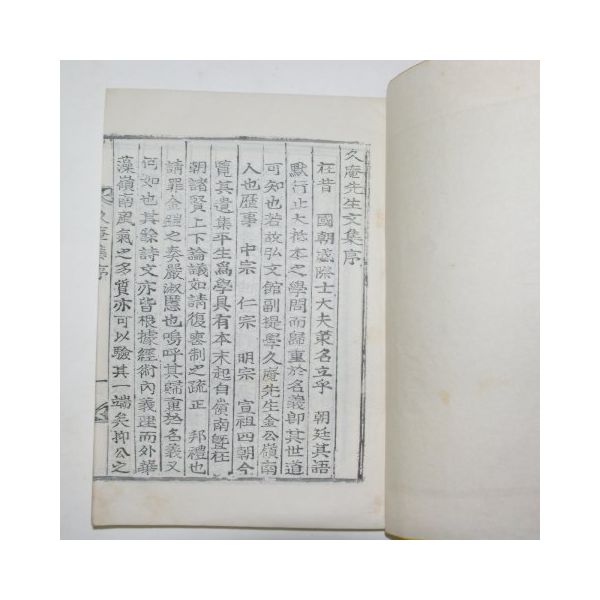 久庵先生文集序
在昔 國朝盛際士大夫策名立乎 朝廷其語
默行止大抵本之學問而歸重於名義卽其世道
可知也若故弘文館副提學久庵先生金公嶺南
人也歷事 中宗 仁宗 明宗 宣祖四朝今
覽其遺集平生爲學具有本末起自嶺南曁在
朝諸賢上下論議如請復喪制之疏正 邦禮也
請罪金 之奏嚴淑慝也嗚呼其歸重於名義又
何如也其餘詩文亦皆根據經術內義理而外華
藻嶺南風氣之多質亦可以驗其一端矣抑公之
久庵集序
一